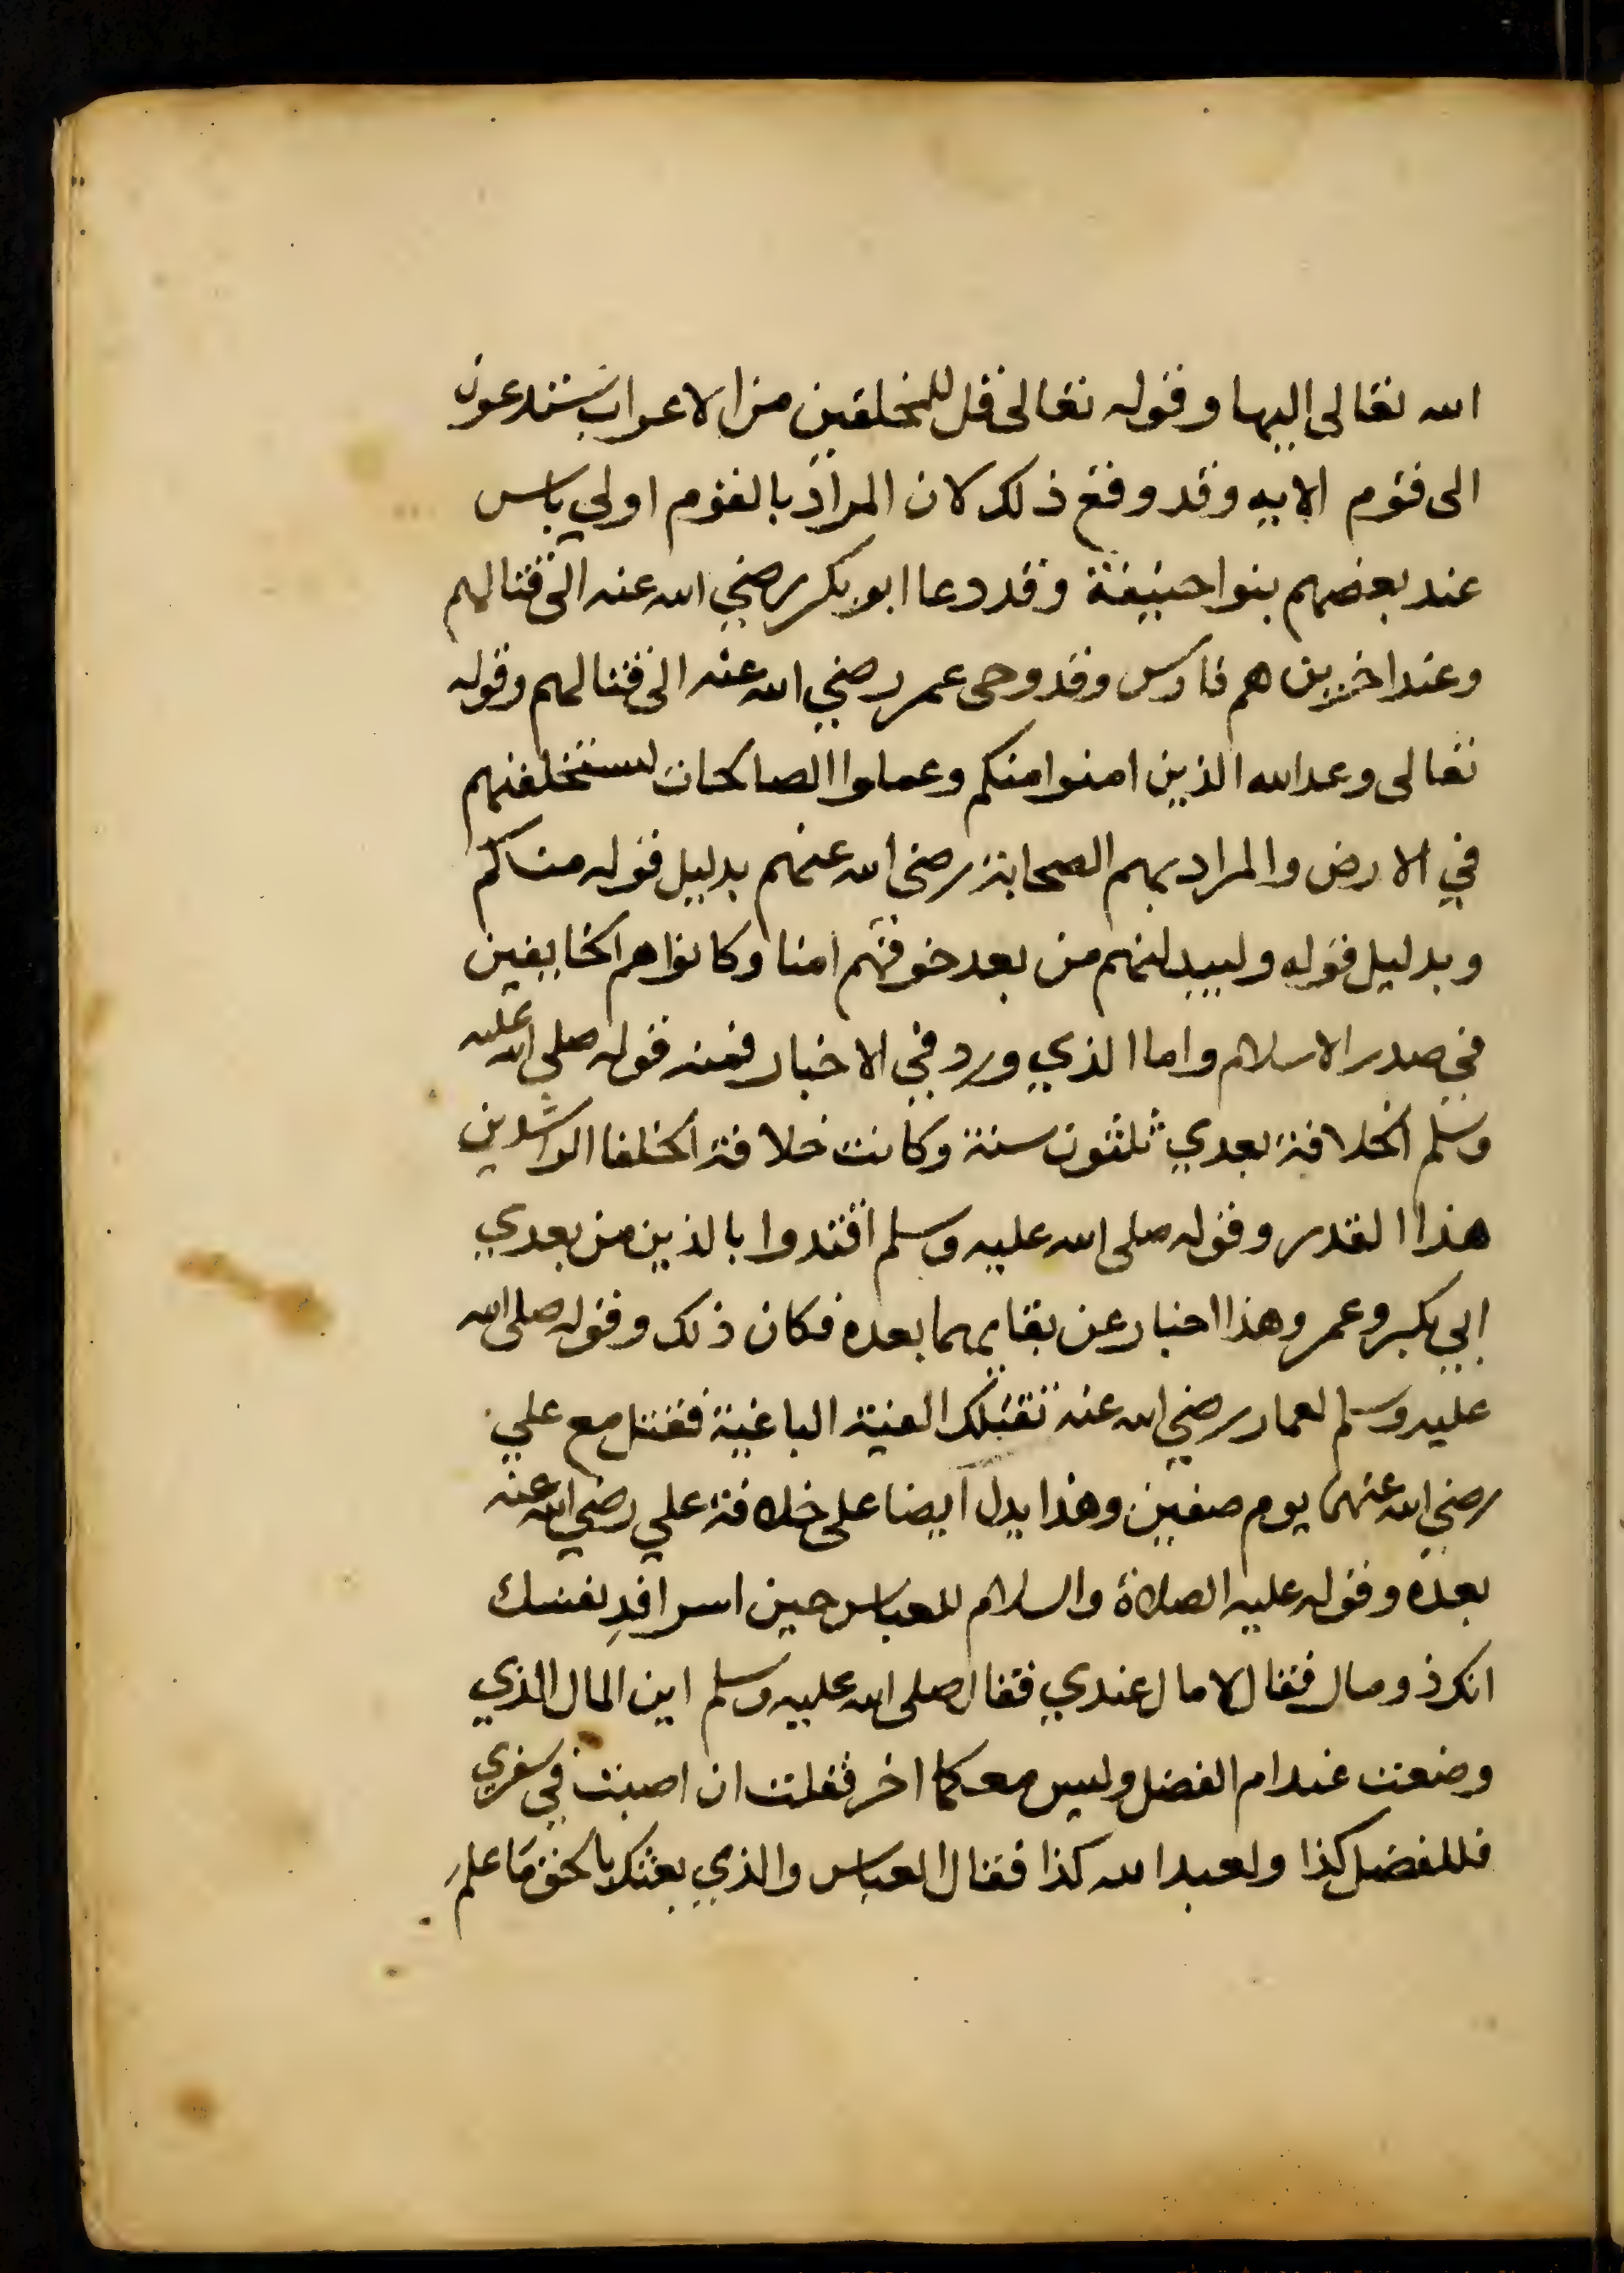 الله تعالى اليها وقوله تعالى قل للمخلفين من الاعراب ستدعون
الى قوم الايه وقد وقع ذلك لان المراد بالقوم اولي باس
عند بعضهم بنوا حنيفة وقد دعا ابو بكر رضي الله عنه الى قتالهم
وعند اخرين هم فارس وقد وحى عمر رضي الله عنه الى قتالهم وقوله
تعالى وعد الله الذين امنوا منكم وعملوا الصالحات ليستخلفنهم
في الارض والمراد بهم الصحابة رضى الله عنهم بدليل قوله منكم
وبدليل قوله وليبدلنهم من بعد خوفهم امنا وكانوا هم الخايفين
في صدر الاسلام واما الذي ورد في الاخبار فمنه قوله صلى الله عليه
وسلم الخلافة بعدي ثلثون سنة وكانت خلافة الخلفا الراشدين
هذا القدر وقوله صلى الله عليه وسلم اقتدوا بالذين من بعدي
ابي بكر وعمر وهذا اخبار عن بقايهما بعده فكان ذلك وقوله صلى الله
عليه وسلم لعمار رضي الله عنه تقتلك الفية الباغية فقتل مع علي
رضي الله عنهما يوم صفين وهذا يدل ايضا على خلافة علي رضي الله عنه
بعده وقوله عليه الصلاة والسلام للعباس حين اسر افدِ نفسك
انك ذو مال فقال لا مال عندي فقال صلى الله عليه وسلم اين المال الذي
وضعت عند ام الفضل وليس معكما اخر فقلت ان اصبت في سفري
فللفضل كذا ولعبد الله كذا فقال العباس والذي بعثك بالحق ما علم